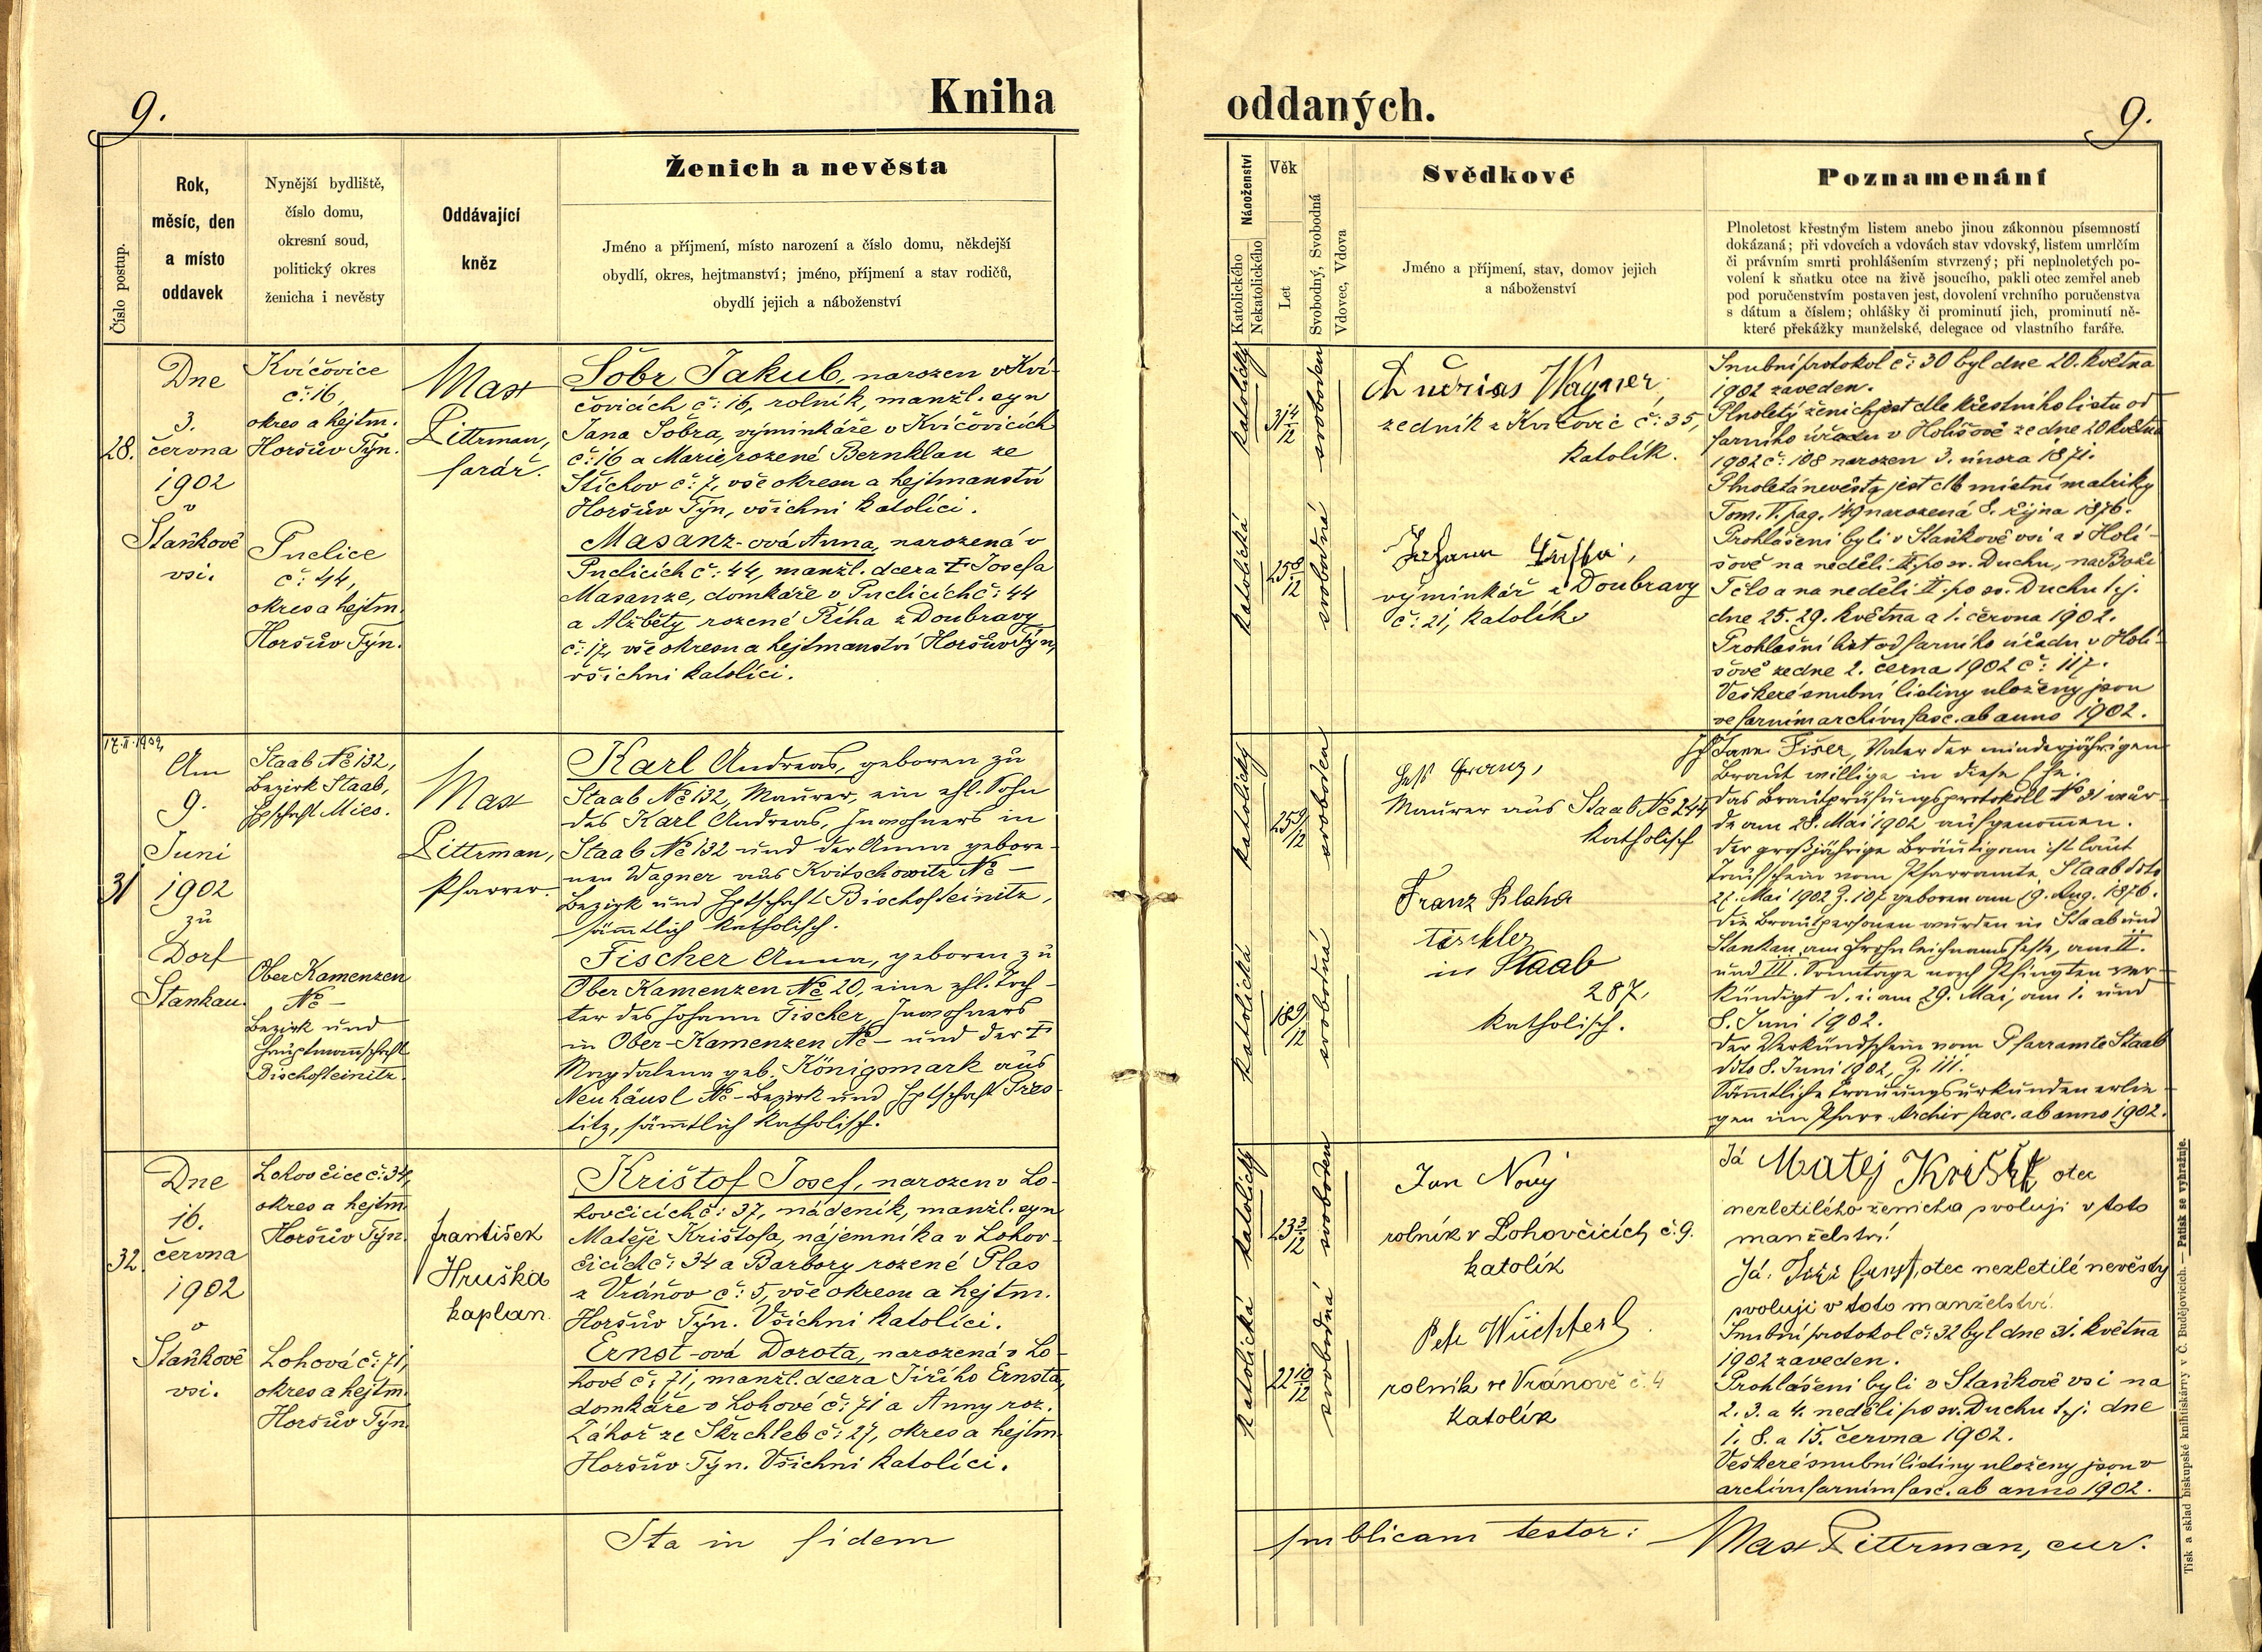 9.
Kniha
Číslo postup.
Rok,
měsíc, den
a místo
oddavek
Nynější bydliště,
číslo domu,
okresní soud,
politický okres
ženicha i nevěsty
Oddávající
kněz
Ženich a nevěsta
Jméno a příjmení, místo narození a číslo domu, někdejší
obydlí, okres, hejtmanství; jméno, příjmení a stav rodičů,
obydlí jejich a náboženství
28.
Dne
3.
června
1902
v
Staňkově
vsi.
Kvíčovice
č: 16,
okres a hejtm.
Horšův Týn.
Puclice
č: 44,
okres a hejtm.
Horšův Týn.
Max
Pittrman,
farář.
Šobr Jakub, narozen v Kví-
čovicích č: 16, rolník, manžl. syn
Jana Šobra, výminkáře v Kvíčovicích
č: 16 a Marie, rozené Bernklau ze
Štichov č: 7, vše okresu a hejtmanství
Horšův Týn, všichni katolíci.
Masanz-ová Anna, narozená v
Puclicích č: 44, manžl. dcera † Josefa
Masanze, domkáře v Puclicích č: 44
a Alžběty rozené Říha z Doubravy
č: 12, vše okresu a hejtmanství Horšův Týn,
všichni katolíci.
17.II.1902
31
Am
9.
Juni
1902
zu
Dorf
Stankau.
Staab № 132,
Bezirk Staab,
Hptschaft Mies.
Ober Kamenzen
№ -
Bezirk und
Hauptmannschaft
Bischofteinitz.
Max
Pittrman,
Pfarrer.
Karl Andreas, geboren zu
Staab № 132, Maurer, ein ehl. Sohn
des Karl Andreas, Inwohners in
Staab № 132 und der Anna gebore-
nen Wagner aus Kvitschowitz № -
Bezirk und Hptschaft Bischofteinitz,
sämtlich katholisch.
Fischer Anna, geboren zu
Ober Kamenzen № 20, eine ehl. Toch-
ter des Johann Fischer, Inwohners
in Ober-Kamenzen № - und der †
Magdalena geb. Königsmark aus
Neuhäusl № - Bezirk und Hptschaft Pres-
titz, sämtlich katholisch.
32.
Dne
16.
června
1902
v
Staňkově
vsi.
Lohovčice č: 34,
okres a hejtm.
Horšův Týn.
Lohová č: 71,
okres a hejtm.
Horšův Týn.
František
Hruška
kaplan.
Krištof Josef, narozen v Lo-
hovčicích č: 37, nádeník, manžl. syn
Matěje Krištofa, nájemníka v Lohov-
čicích č: 34 a Barbory rozené Plas
z Vránov č: 5, vše okresu a hejtm.
Horšův Týn. Všichni katolíci.
Ernst-ová Dorota, narozená v Lo-
hové č: 71, manžl. dcera Jiřího Ernsta,
domkáře v Lohové č: 71 a Anny roz.
Záhoř ze Škrchleb č: 27, okres a hejtm.
Horšův Týn. Všichni katolíci.
Ita in fidem
oddaných.
9.
Náboženství
Katolického
Nekatolického
Věk
Let
Svobodný, Svobodná
Vdovec, Vdova
Svědkové
Jméno a příjmení, stav, domov jejich
a náboženství
Poznamenání
Plnoletost křestným listem anebo jinou zákonnou písemností
dokázaná; při vdovcích a vdovách stav vdovský, listem umrlčím
či právním smrti prohlášením stvrzený; při neplnoletých po-
volení k sňatku otce na živě jsoucího, pakli otec zemřel aneb
pod poručenstvím postaven jest, dovolení vrchního poručenstva
s dátum a číslem; ohlášky či prominutí jich, prominutí ně-
které překážky manželské, delegace od vlastního faráře.
katolický
31 4/12
svoboden
katolická
25 8/12
svobodná
Wagner,
zedník z Kvíčovic č: 35,
katolík.
Johann
výminkář z Doubravy
č: 21, katolík
Snubní protokol č: 30 byl dne 20. května
1902 zaveden.
Plnoletý ženich jest dle křestního listu od
farního úřadu v Holišově ze dne 20 května
1902 č: 108 narozen 3. února 1871.
Plnoletá nevěsta jest dle místní matriky
Tom. V. pag. 149 narozená 8. října 1876.
Prohlášeni byli v Staňkově vsi a v Holi-
šově na neděli II. po sv. Duchu, na Boží
Tělo a na neděli II. po sv. Duchu t.j.
dne 25. 29. května a 1. června 1902.
Prohlašní list od farního úřadu v Holi-
šově ze dne 2. černa 1902 č: 117.
Veškeré snubní listiny uloženy jsou
ve farním archivu fasc. ab anno 1902.
katolický
25 9/12
svoboden
katolická
18 9/12
svobodná
Heß Franz,
Maurer aus Staab № 244
katholisch
Franz Blaha
Tischler
in Staab
287,
katholisch.
Ich Jann Fišer, Vater der minderjährigen
Braut willige in diese Ehe.
Das Brautprüfungsprotokoll № 31 wur-
de am 28. Mai 1902 aufgenommen.
Der großjährige Bräutigam ist laut
Taufschein vom Pfarramte Staab ddto
27. Mai 1902 Z. 107 geboren am 19. Aug. 1876.
Die Brautpersonen wurden in Staab und
Stankau am Frohnleichnamsfeste, am II.
und III. Sonntage nach Pfingsten ver-
kündigt d. i. am 29. Mai, am 1. und
8. Juni 1902.
Der Verkündschein vom Pfarramte Staab
ddto 8. Juni 1902, Z. 111.
Sämtliche Trauungsurkunden erlie-
gen im Pfarr-Archiv fasc. ab anno 1902.
katolický
23 3/12
svoboden
katolická
22 10/12
svobodná
Jan Nový
rolník v Lohovčicích č. 9.
katolík
Petr
rolník ve Vránově č. 4
katolík
Já Matej Krišt otec
nezletilého ženicha svoluji v toto
manželství!
Já, Jiří Ernst, otec nezletilé nevěsty
svoluji v toto manželství.
Snubní protokol č: 32 byl dne 31. května
1902 zaveden.
Prohlášeni byli v Staňkově vsi na
2. 3. a 4. neděli po sv. Duchu t.j. dne
1. 8. a 15. června 1902.
Veškeré snubní listiny uloženy jsou v
archivu farním fasc. ab anno 1902.
publicam testor:
Max Pittrman, cur.
Tisk a sklad biskupské knihtiskárny v Č. Budějovicích. — Patisk se vyhražuje.